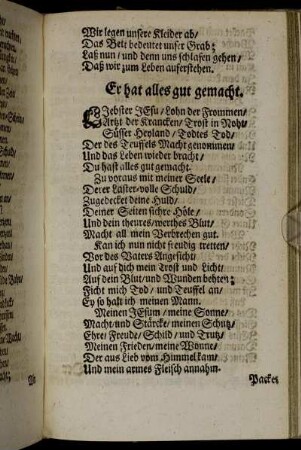 Wir legen unsere Kleider ab/
Das Bett bedeutet unser Grab;
Laß nun/ und denn uns schlafen gehen/
Daß wir zum Leben auferstehen.
Er hat alles gut gemacht.
LJebster JEsu/ Lohn der Frommen/
Artzt der Krancken/ Trost in Noht/
Süsser Heyland/ Todtes Tod/
Der des Teuffels Macht genommen/
Und das Leben wieder bracht/
Du hast alles gut gemacht.
Zu voraus mit meiner Seele/
Derer Laster-volle Schuld/
Zugedecket deine Huld/
Deiner Seiten sichre Höle/
Und dein theures/ werthes Blut/
Macht all mein Verbrechen gut.
Kan ich nun nicht freudig tretten/
Vor des Vaters Angesicht/
Und auf dich mein Trost und Licht/
Auf dein Blut/ und Wunden behten;
Ficht mich Tod/ und Teuffel an/
Ey so halt ich meinen Mann.
Meinen JEsum/ meine Sonne/
Macht/ und Stärcke/ meinen Schutz/
Ehre/ Freude/ Schild/ und Trutz/
Meinen Frieden/ meine Wonne/
Der aus Lieb vom Himmel kam/
Und mein armes Fleisch annahm.